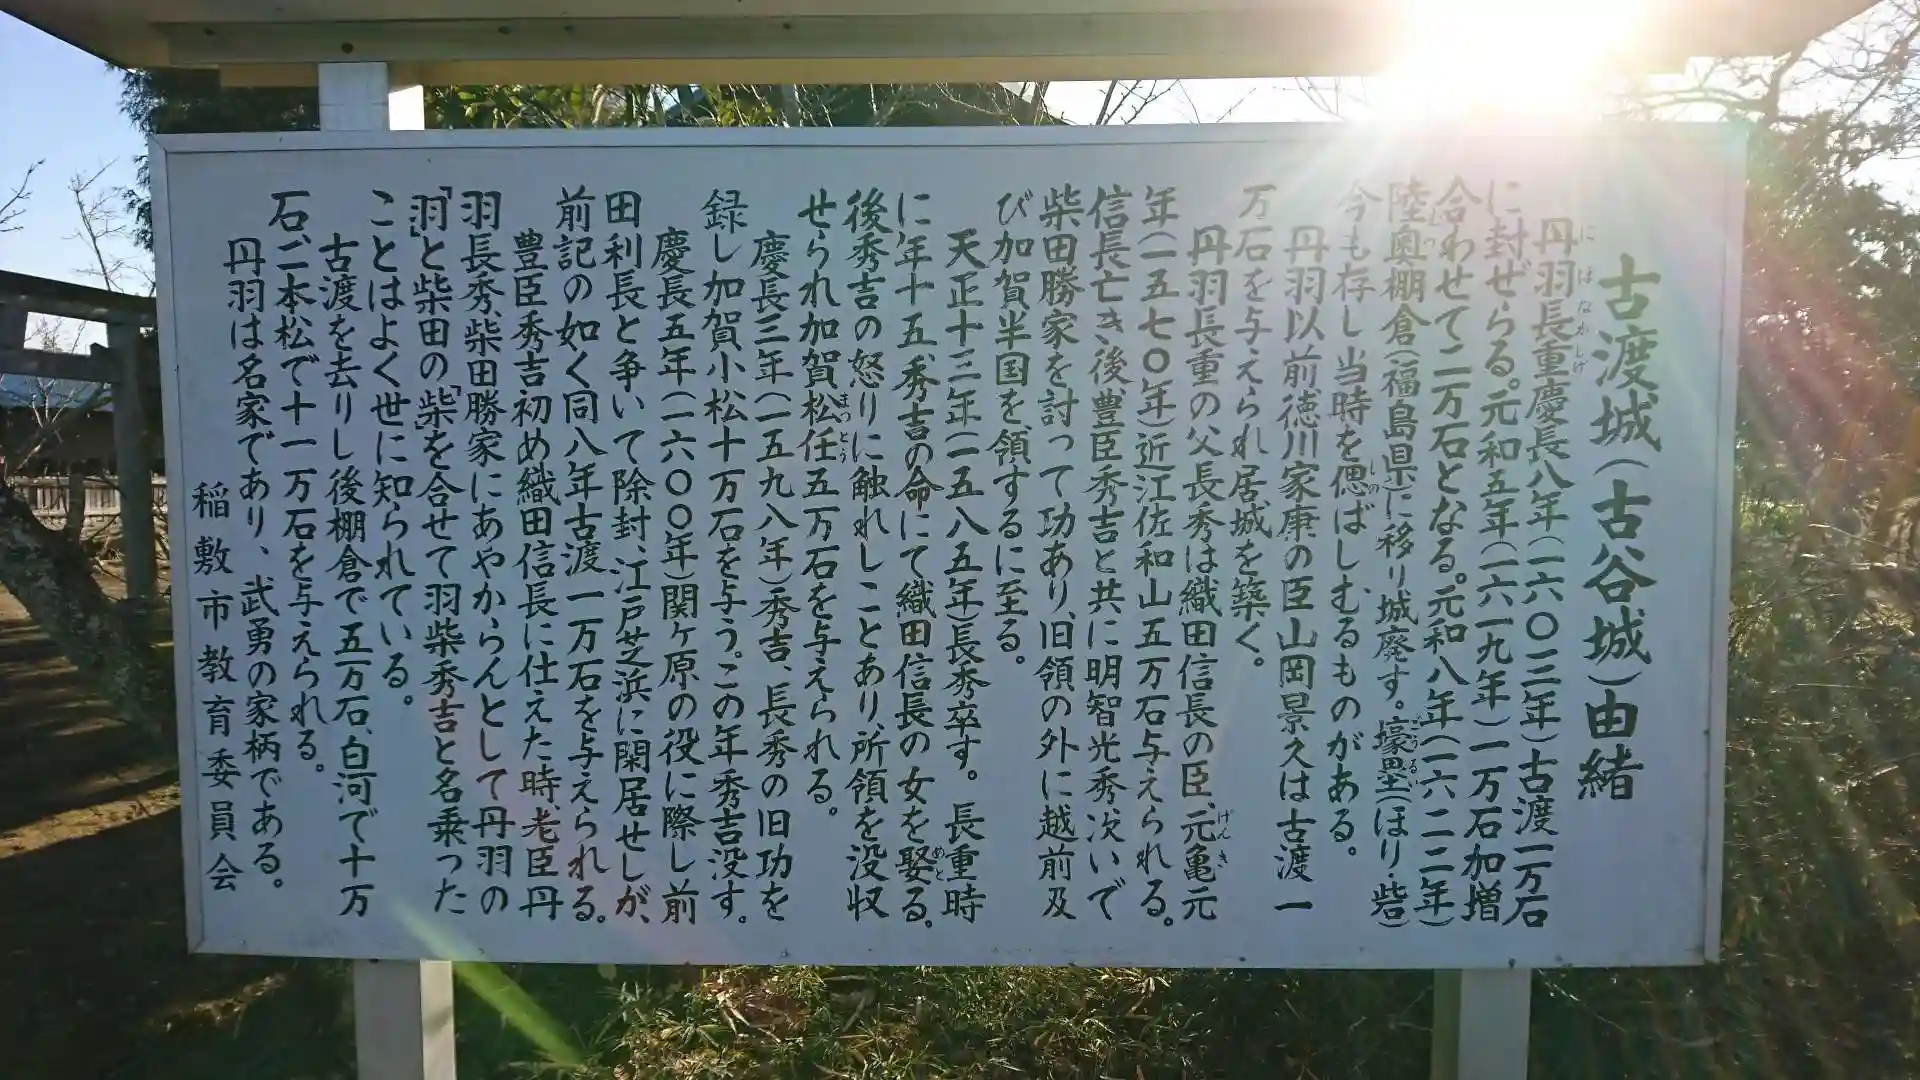 古渡城(古谷城)由緒
丹羽長重慶長八年(一六〇三年)古渡一万石
に封ぜらる。元和五年(一六一九年)一万石加増
合わせて二万石となる。元和八年(一六二二年)
陸奥棚倉(福島県)に移り城廃す。壕塁(ほり・砦)
今も存し当時を偲ばしむるものがある。
丹羽以前徳川家康の臣山岡景久は古渡一
万石を与えられ居城を築く。
丹羽長重の父長秀は織田信長の臣、元亀元
年(一五七〇年)近江佐和山五万石与えられる。
信長亡き後、豊臣秀吉と共に明智光秀、次いで
柴田勝家を討って功あり、旧領の外に越前及
び加賀半国を領するに至る。
天正十三年(一五八五年)長秀卒す。長重時
に年十五、秀吉の命にて織田信長の女を娶る。
後秀吉の怒りに触れしことあり、所領を没収
せられ加賀松任五万石を与えられる。
慶長三年(一五九八年)秀吉、長秀の旧功を
録し加賀小松十万石を与う。この年秀吉没す。
慶長五年(一六〇〇年)関ヶ原の役に際し前
田利長と争いて除封、江戸芝浜に閑居せしが、
前記の如く同八年古渡一万石を与えられる。
豊臣秀吉初め織田信長に仕えた時、老臣丹
羽長秀、柴田勝家にあやからんとして丹羽の
「羽」と柴田の「柴」を合せて羽柴秀吉と名乗った
ことはよく世に知られている。
古渡を去りし後棚倉で五万石、白河で十万
石、二本松で十一万石を与えられる。
丹羽は名家であり、武勇の家柄である。
稲敷市教育委員会